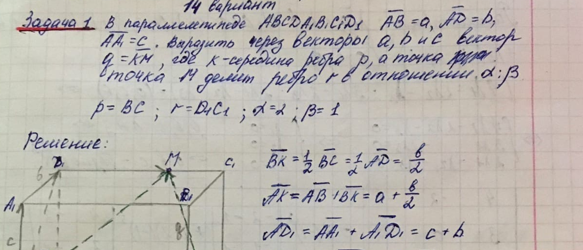 14 вариант
Задача 1. В параллелепипеде ABCDA₁B₁C₁D₁ AB̅=a, AD̅=b,
AA̅₁=c. Выразить через векторы a, b и c вектор
q=KM̅, где K-середина ребра p, а точка
точка M делит ребро r в отношении α:β
p=BC; r=D₁C₁; α=2; β=1
Решение:
BK̅=1/2 BC̅=1/2 AD̅=b/2
AK̅=AB̅+BK̅=a+b/2
AD̅₁=AA̅₁+A₁D̅₁=c+b
M
C₁
A₁
b
c
q